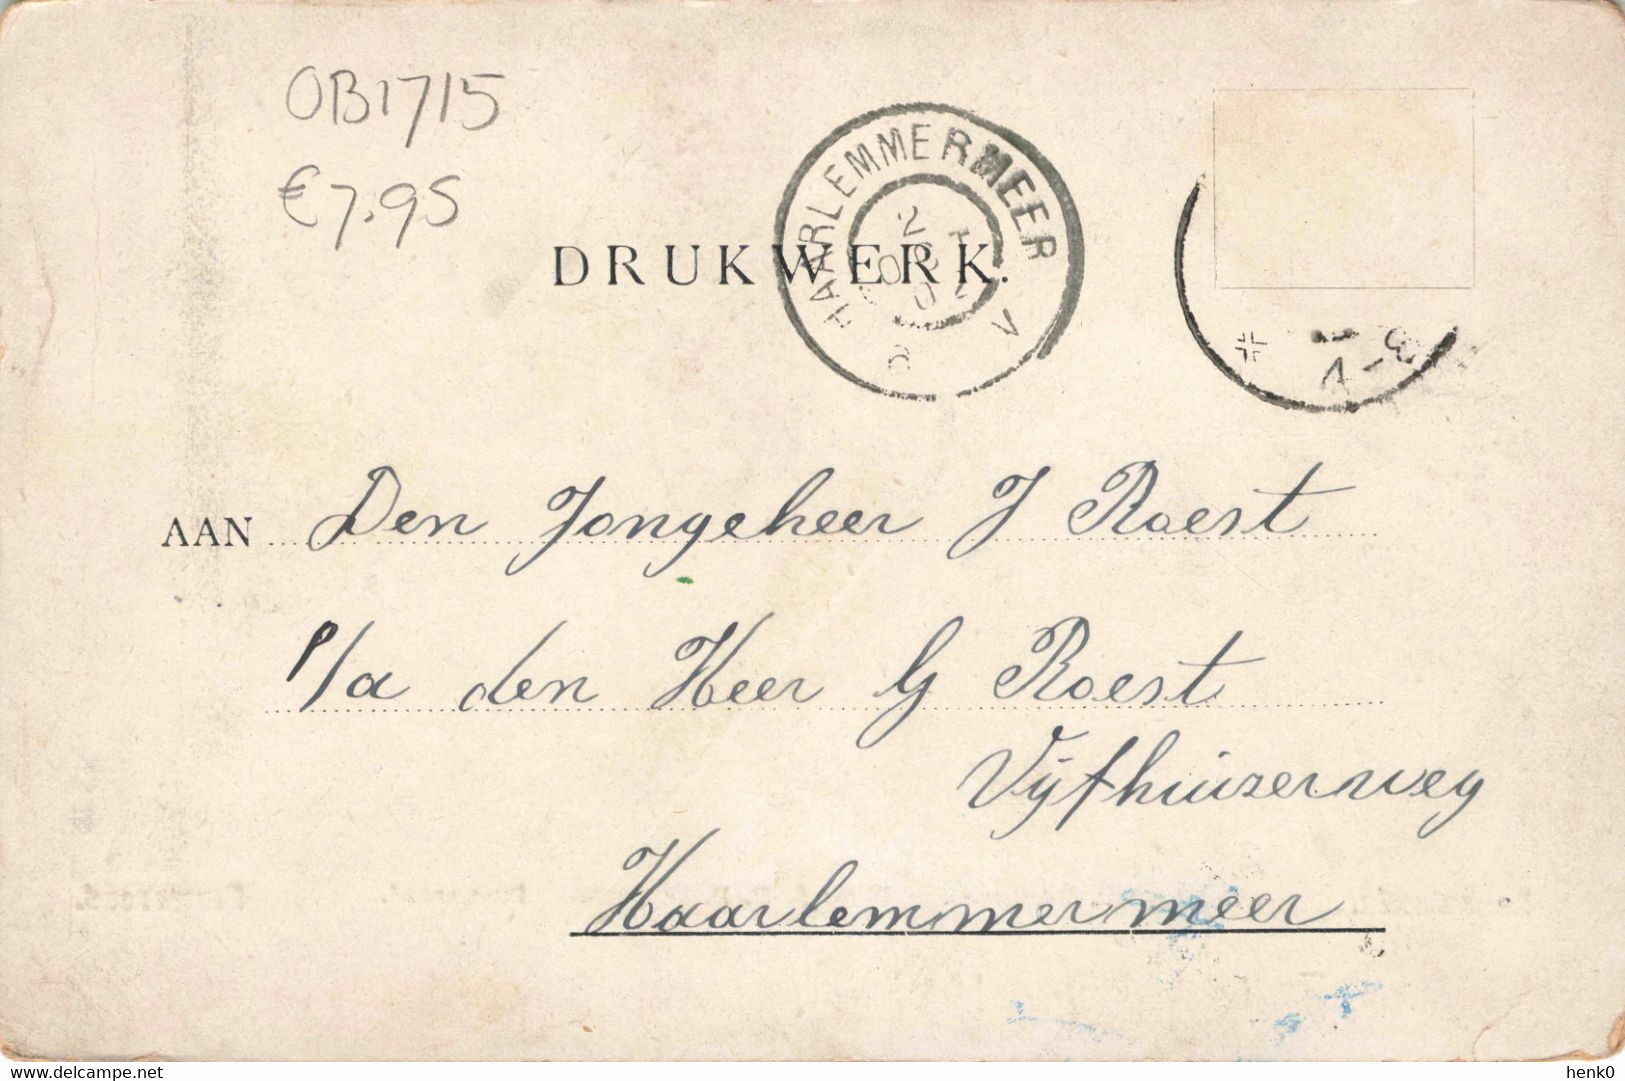 OB1715
€7.95
HAARLEMMERMEER
DRUKWERK.
AAN Den Jongeheer J Roest
p/a den Heer G Roest
Vijfhuizerweg
Haarlemmermeer
delcampe.net
henk0